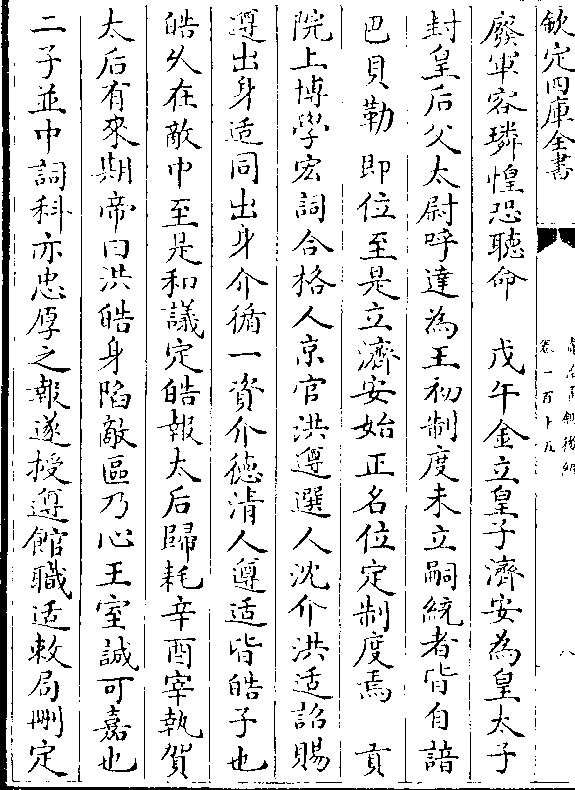 欽定四庫全書
卷一百十五
八
廢軍容璘惶恐聽命　戊午金立皇子濟安為皇太子
封皇后父太尉呼達為王初制度未立嗣統者皆自諳
巴貝勒即位至是立濟安始正名位定制度焉　貢
院上博學宏詞合格人京官洪遵選人沈介洪适詔賜
遵出身适同出身介循一資介徳清人遵适皆皓子也
皓久在敵中至是和議定皓報太后歸耗辛酉宰執賀
太后有來期帝曰洪皓身陷敵區乃心王室誠可嘉也
二子並中詞科亦忠厚之報遂授遵館職适敕局刪定